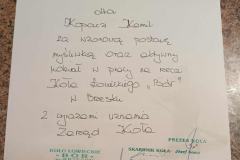 dla
Kopacz Kamil
za wzorową postawę
myśliwską oraz aktywny
udział w pracy na rzecz
Koła Łowieckiego „Bór”
w Brzesku
Z wyrazami uznania
Zarząd Koła
PREZES KOŁA
KOŁO ŁOWIECKIE
"BÓR"
SKARBNIK KOŁA